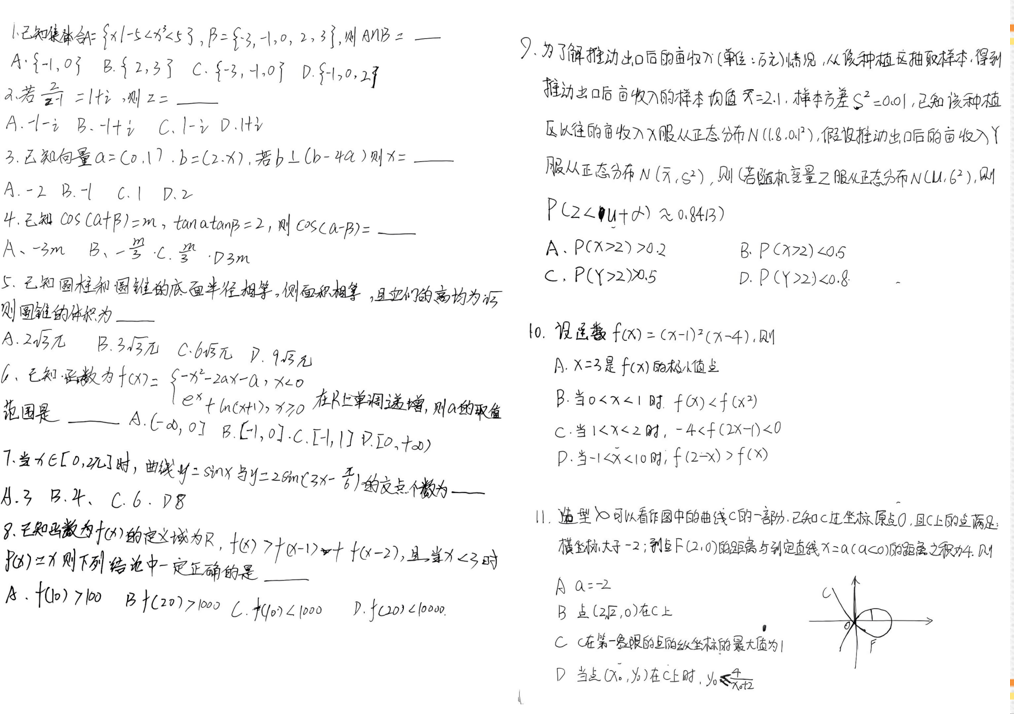 1.已知集合A={x|-5<x³<5},B={-3,-1,0,2,3},则A∩B= __
A.{-1,0} B.{2,3} C.{-3,-1,0} D.{-1,0,2}
2.若 z/(z-1) =1+i,则z= ___
A.-1-i B.-1+i C.1-i D.1+i
3.已知向量a=(0.1).b=(2.x),若b⊥(b-4a)则x= ___
A.-2 B.-1 C.1 D.2
4.已知cos(α+β)=m,tanαtanβ=2,则cos(α-β)= ___
A、-3m B、-m/3 .C. m/3 .D3m
5.已知圆柱和圆锥的底面半径相等,侧面积相等,且它们的高均为√3
则圆锥的体积为 ___
A.2√3π B.3√3π C.6√3π D.9√3π
6、已知函数为f(x)= {-x²-2ax-a,x<0
eˣ+ln(x+1),x≥0 在R上单调递增,则a的取值
范围是 ____ A.(-∞,0] B.[-1,0].C.[-1,1] D.[0,+∞)
7.当x∈[0,2π]时,曲线y=sinx与y=2sin(3x-π/6)的交点个数为 ___
A.3 B.4、 C.6. D8
8.已知函数为f(x)的定义域为R,f(x)>f(x-1)+f(x-2),且当x<3时
f(x)=x则下列结论中一定正确的是 ____
A.f(10)>100 B f(20)>1000 C.f(10)<1000 D.f(20)<10000.
9.为了解推动出口后的亩收入(单位:万元)情况,从该种植区抽取样本,得到
推动出口后亩收入的样本均值x̄=2.1,样本方差S²=0.01,已知该种植
区以往的亩收入X服从正态分布N(1.8,0.1²),假设推动出口后的亩收入Y
服从正态分布N(x̄,S²),则(若随机变量Z服从正态分布N(u,6²),则
P(Z<u+σ)≈0.8413)
A.P(X>2)>0.2 B.P(X>2)<0.5
C.P(Y>2)>0.5 D.P(Y>2)<0.8
10.设函数f(x)=(x-1)²(x-4),则
A.x=3是f(x)的极小值点
B.当0<x<1时.f(x)<f(x²)
C.当1<x<2时,-4<f(2x-1)<0
D.当-1<x<10时,f(2-x)>f(x)
11.造型∝可以看作图中的曲线C的一部分.已知C过坐标原点O,且C上的点满足:
横坐标大于-2;到点F(2,0)的距离与到定直线x=a(a<0)的距离之积为4.则
A a=-2
B 点(2√2,0)在C上
C C在第一象限的点的纵坐标的最大值为1
D 当点(x₀,y₀)在C上时,y₀≤4/(x₀+2)
C
O
F